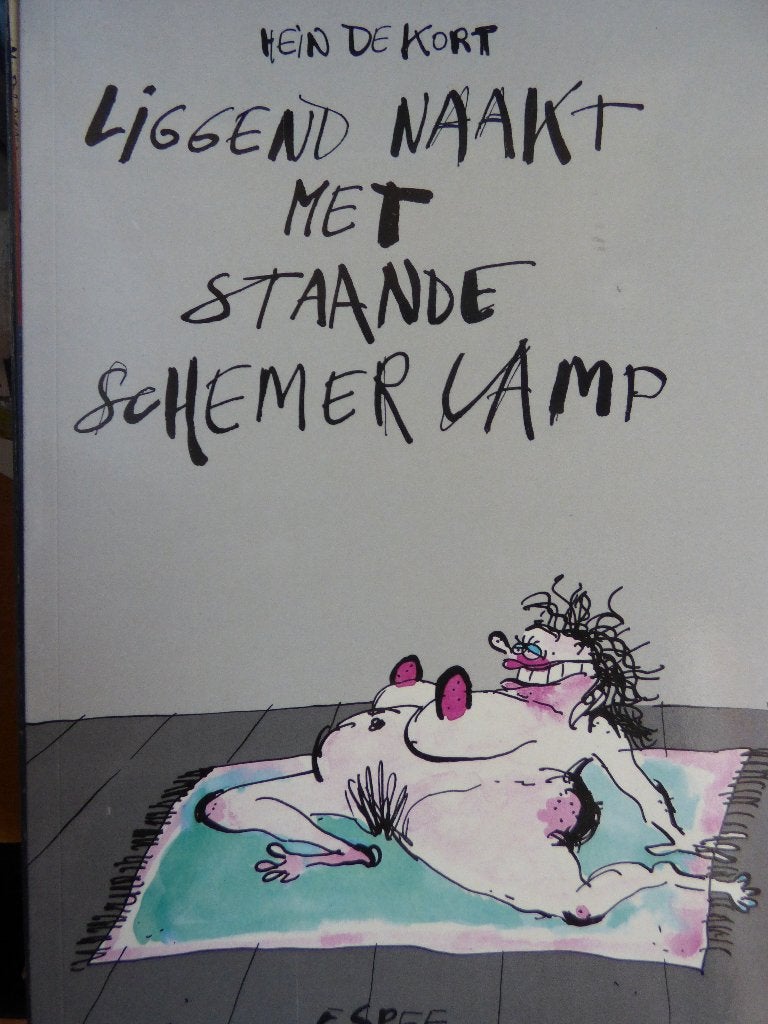 HEIN DE KORT
LIGGEND NAAKT
MET
STAANDE
SCHEMERLAMP
ESPEE